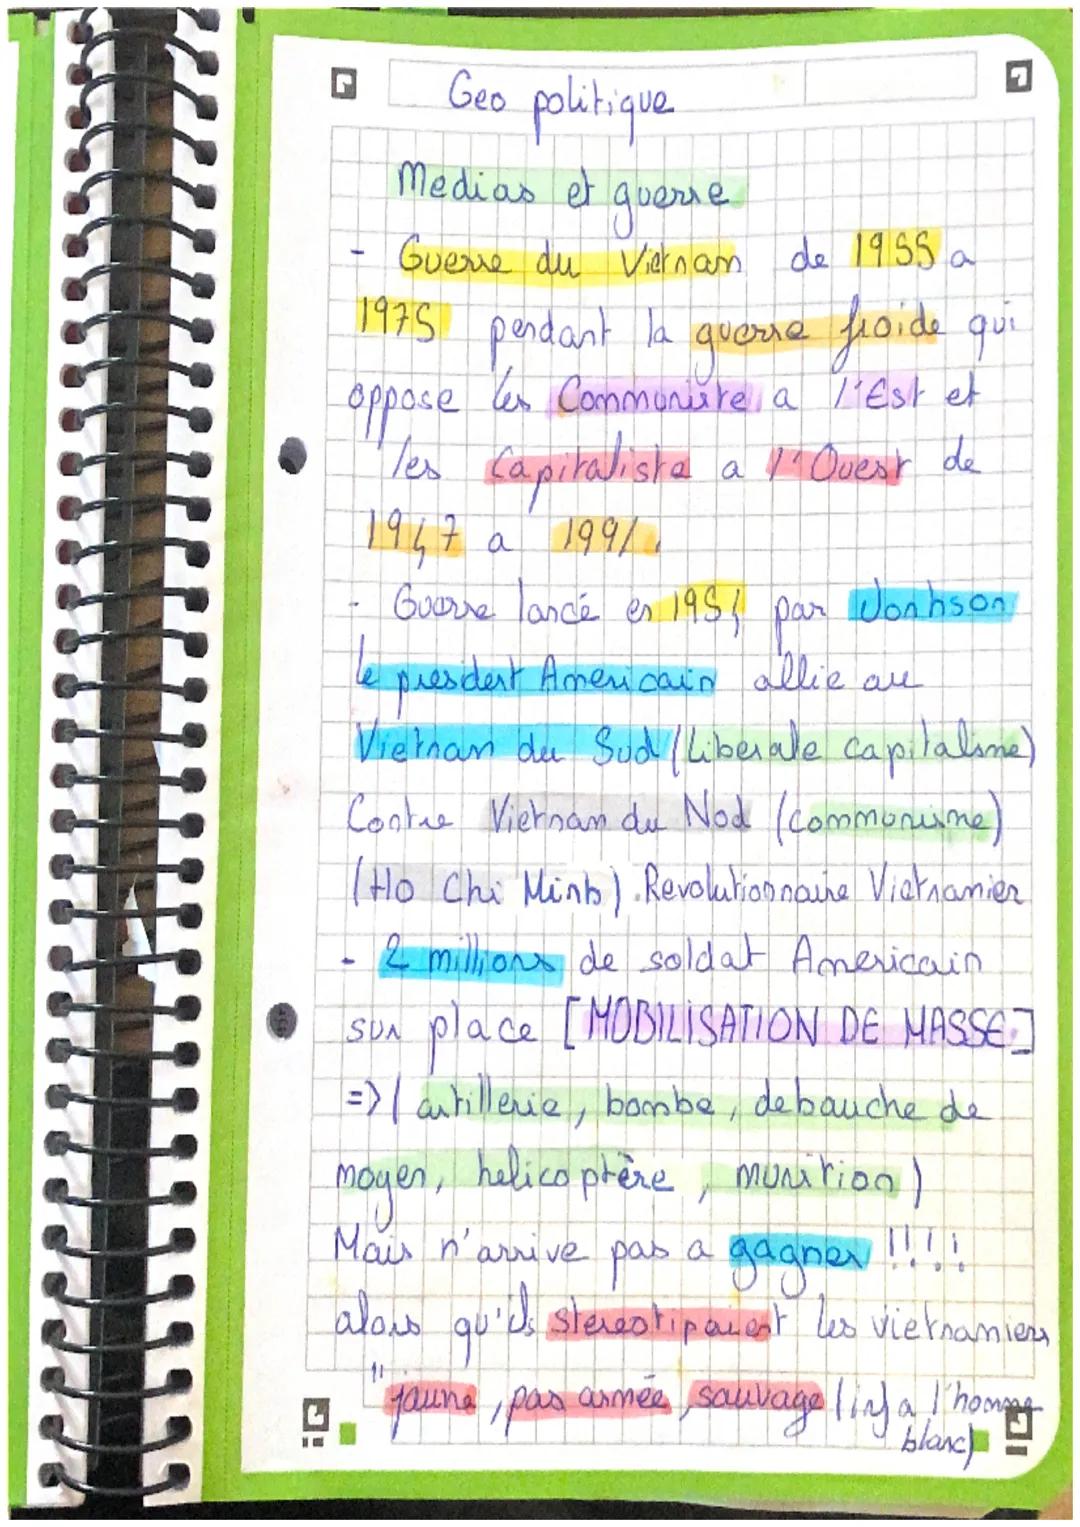 Geo politique
Medias et guerre
- Guerre du Vietnam de 1955 a
1975 pendant la guerre froide qui
oppose les Communiste a l'Est et
les Capitaliste a l'Ouest de
1947 a 1991.
- Guerre lancé en 1954 par Jonhson
le president Americain allie au
Vietnam du Sud (Liberale capitalisme)
Contre Vietnam du Nod (communisme)
(Ho Chi Minh). Revolutionnaire Vietnamien
- 2 millions de soldat Americain
sur place [MOBILISATION DE MASSE]
=> ( artillerie, bombe, debauche de
moyen, helicoptère, munition)
Mais n'arrive pas a gagner !!!!
alors qu'ils stereotipaient les vietnamiens
"jaune, pas armée, sauvage (inf a l'homme
blanc)